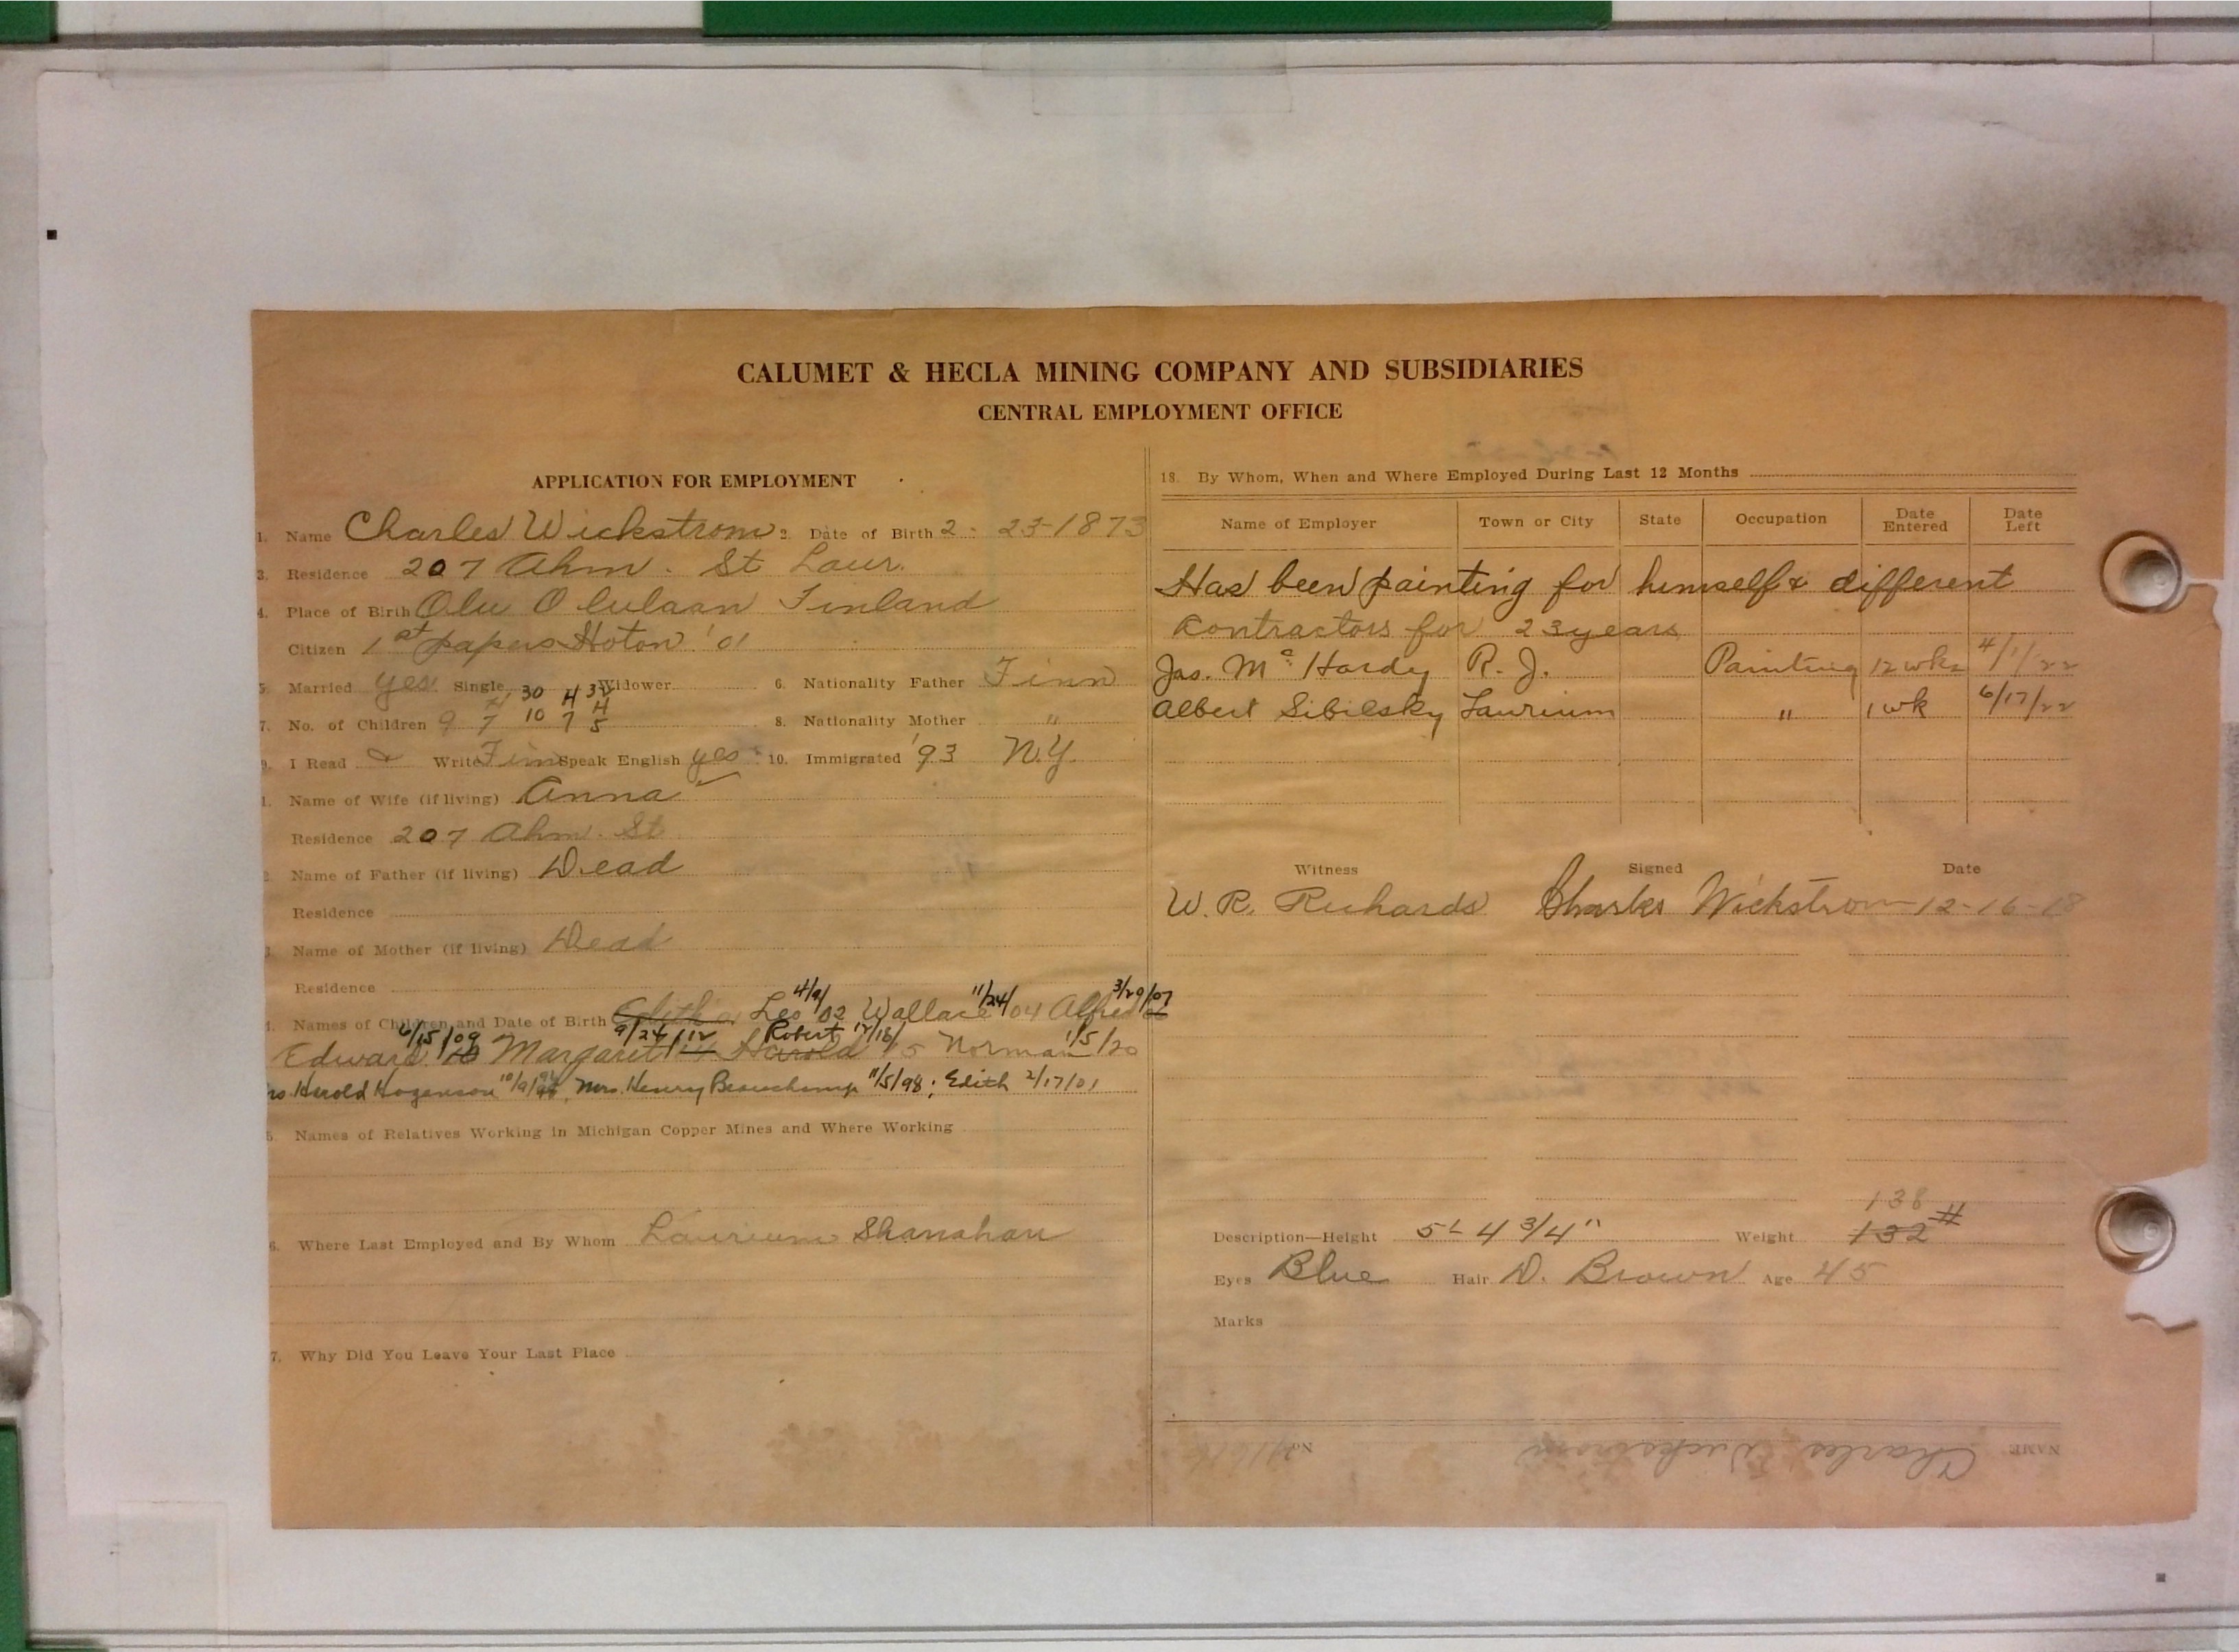 CALUMET & HECLA MINING COMPANY AND SUBSIDIARIES
CENTRAL EMPLOYMENT OFFICE
APPLICATION FOR EMPLOYMENT
1. Name Charles Wickstrom 2. Date of Birth 2-23-1873
3. Residence 207 Ahm. St Laur.
4. Place of Birth Olu Finland
Citizen 1st papers Hoton '01
5. Married yes. Single Widower 6. Nationality Father Finn
30 4 3
7. No. of Children 9 7 10 7 5 4 8. Nationality Mother "
9. I Read & Write Finn Speak English yes 10. Immigrated '93 N.Y.
1. Name of Wife (if living) Anna
Residence 207 Ahm. St
2. Name of Father (if living) Dead
Residence
3. Name of Mother (if living) Dead
Residence
4. Names of Children and Date of Birth Edith Leo 4/9/02 Wallace 11/24/04 Alfred 3/29/07
Edward 6/15/09 Margaret 9/24/12 Harold Robert 12/18/15 Norman 1/5/20
rs. Harold Hogenson 10/9/ , Mrs. Henry Beauchamp 11/5/98; Edith 2/17/01
5. Names of Relatives Working in Michigan Copper Mines and Where Working
6. Where Last Employed and By Whom Laurium Shanahan
7. Why Did You Leave Your Last Place
18. By Whom, When and Where Employed During Last 12 Months
Name of Employer Town or City State Occupation Date Entered Date Left
Has been painting for himself & different
Contractors for 23 years
Jas. Mc Hardy R. J. Painting 12 wks 4/1/22
Albert Sibilsky Laurium " 1 wk 6/17/22
Witness Signed Date
W. R. Richards Charles Wickstrom 12-16-18
138
Description—Height 5' 4 3/4" Weight 132 #
Eyes Blue Hair D. Brown Age 45
Marks
NAME Charles Wickstrom No.